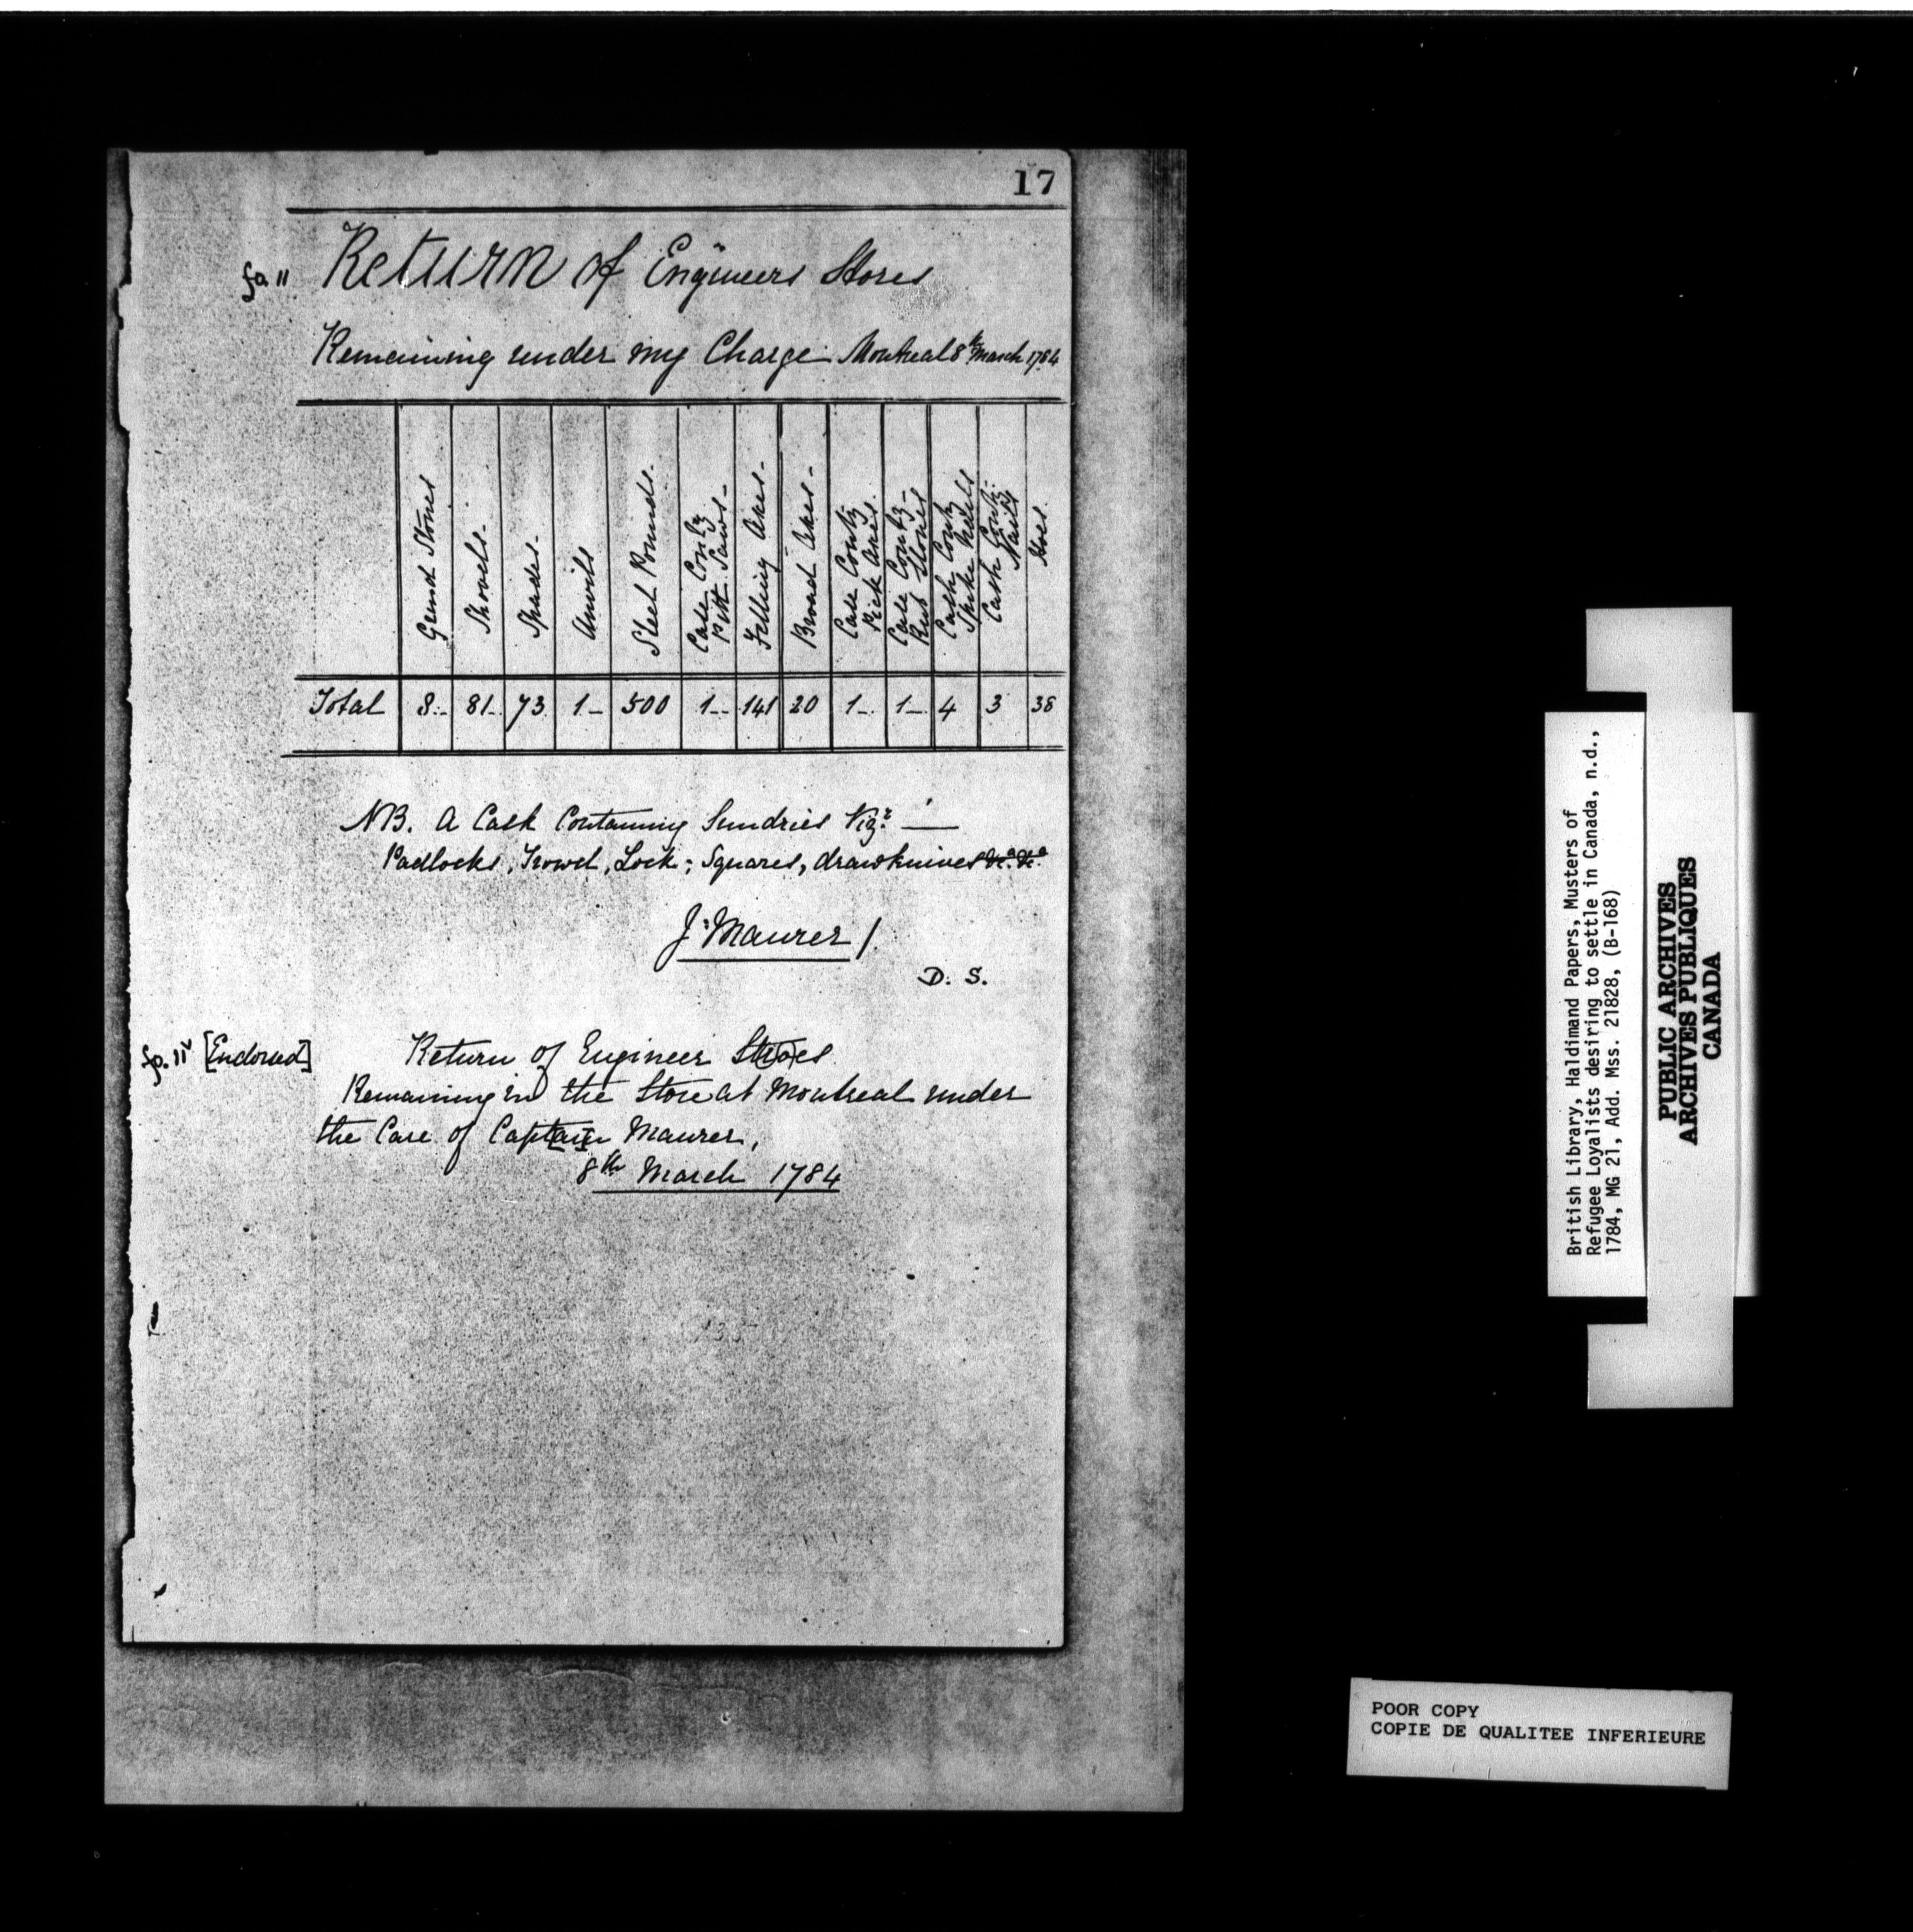 17
fo. 11 Return of Engineers Stores
Remaining under my Charge Montreal 8th March 1784
Grind Stones
Shovels-
Spades-
Anvils
Steel Pounds-
Case Contg
Pitt Saws-
Felling Axes-
Broad Axes-
Case Contg
Pick Axes.
Case Contg-
Rub Stones
Cask Contg
Spike Nails
Cask Contg-
Nails
Hoes.
Total 8.- 81- 73 1- 500 1-- 141 20 1- 1- 4 3 38
NB. A Cask Containing Sundries Vizt. —
Padlocks, Trowel, Lock; Squares, drawknives &ca. &ca.
J: Maurer /.
D. S.
fo. 11v [Endorsed] Return of Engineer St(o)res
Remaining in the Store at Montreal under
the Care of Capt[ai]n Maurer,
8th March 1784
British Library, Haldimand Papers, Musters of
Refugee Loyalists desiring to settle in Canada, n.d.,
1784, MG 21, Add. Mss. 21828, (B-168)
PUBLIC ARCHIVES
ARCHIVES PUBLIQUES
CANADA
POOR COPY
COPIE DE QUALITEE INFERIEURE